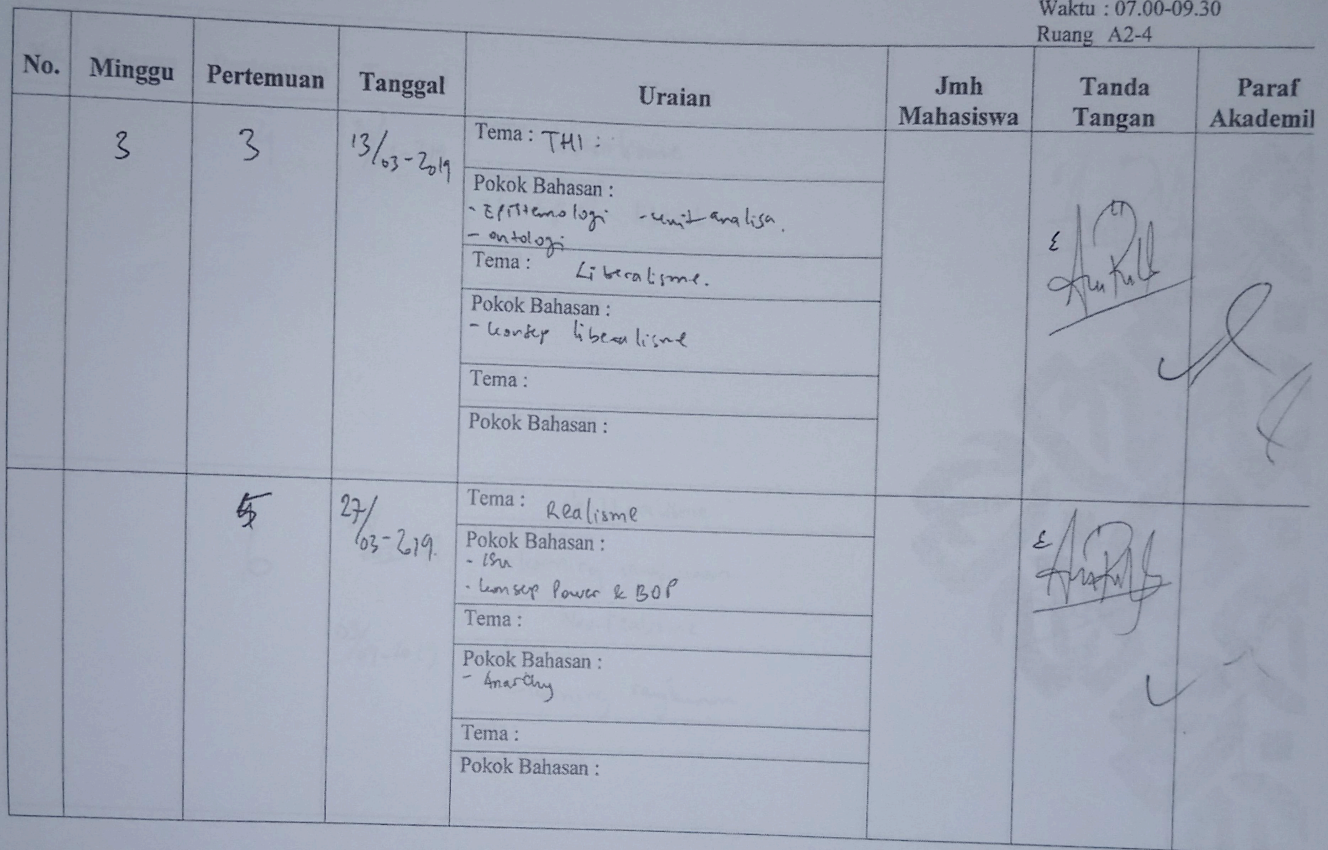 Waktu : 07.00-09.30
Ruang A2-4
No. Minggu Pertemuan Tanggal Uraian Jmh Mahasiswa Tanda Tangan Paraf Akademil
3 3 13/03-2019
Tema : THI :
Pokok Bahasan :
- Epistemologi - unit analisa.
- ontologi
Tema : Liberalisme.
Pokok Bahasan :
- konsep liberalisme
Tema :
Pokok Bahasan :
5 27/03-2019.
Tema : Realisme
Pokok Bahasan :
- isu
- konsep Power & BOP
Tema :
Pokok Bahasan :
- Anarchy
Tema :
Pokok Bahasan :